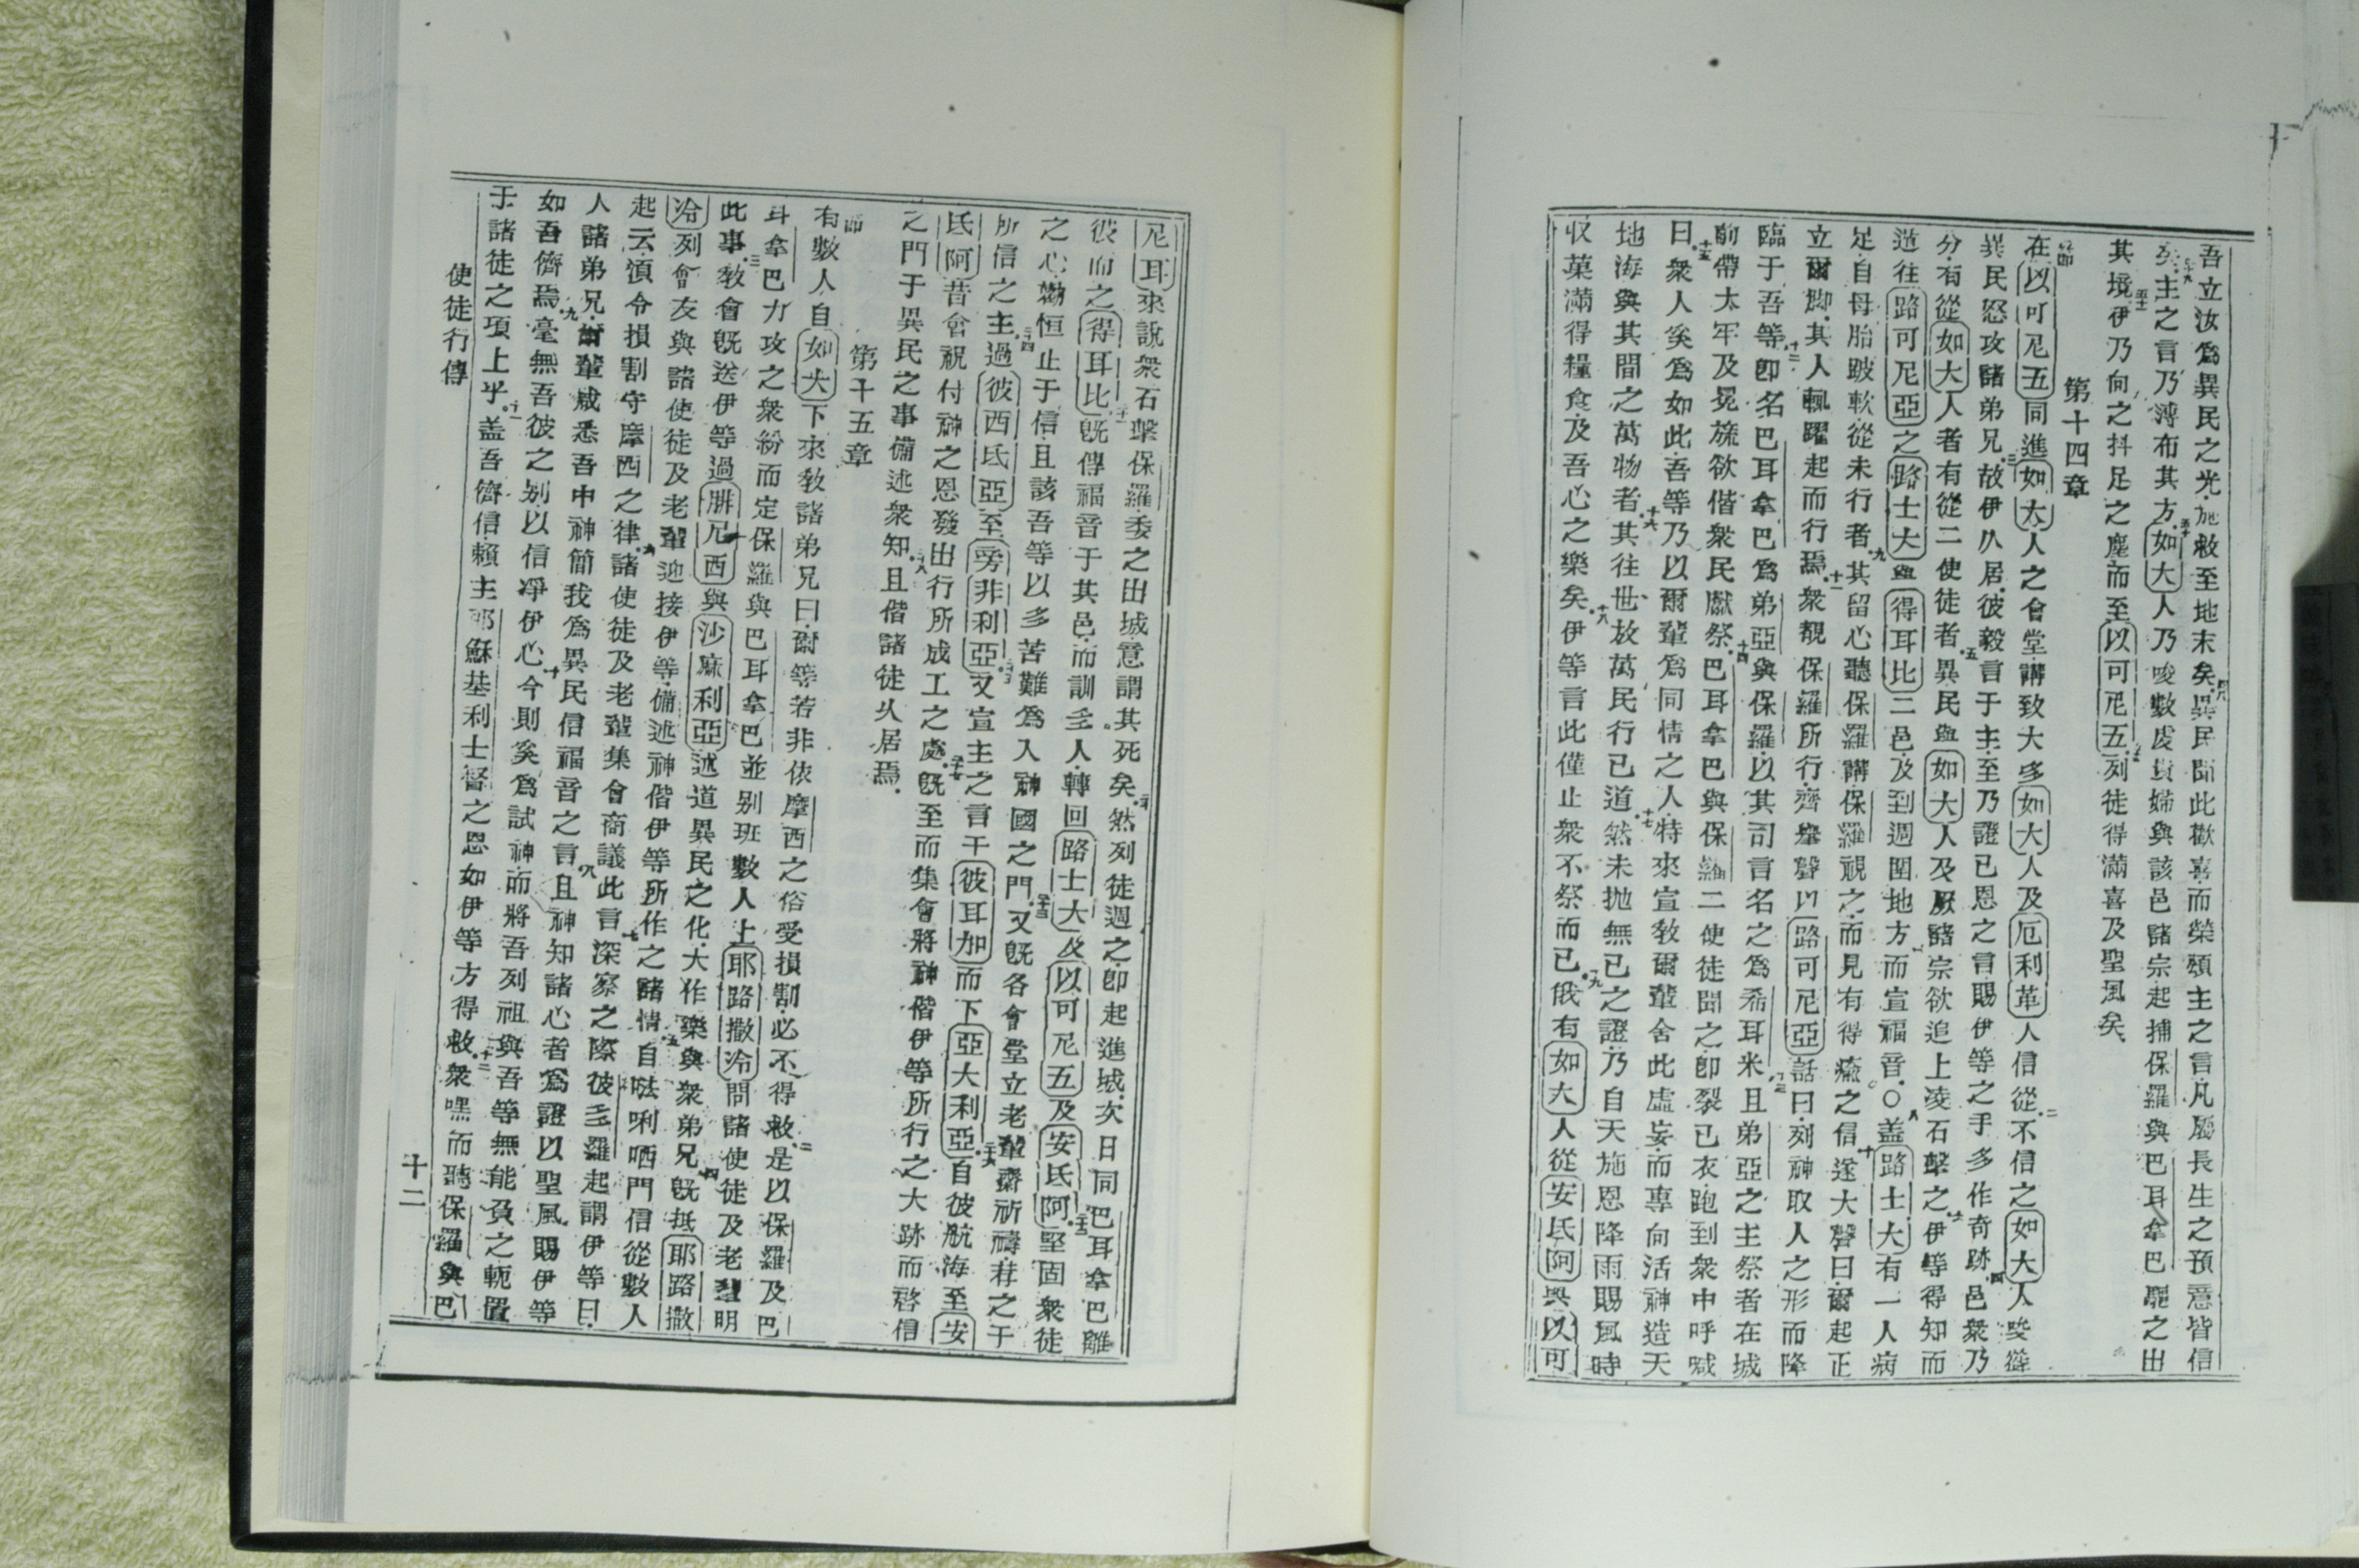 吾立汝爲異民之光施救至地末矣異民聞此歡喜而榮頌主之言凡屬長生之預意皆信
矣主之言乃溥布其方如大人乃唆數虔貴婦與該邑諸宗起捕保羅與巴耳拿巴驅之出
其境伊乃向之抖足之塵而至以可尼五列徒得滿喜及聖風矣
第十四章
在以可尼五同進如大人之會堂講致大多如大人及厄利革人信從不信之如大人唆
異民怒攻諸弟兄故伊久居彼毅言于主至乃證己恩之言賜伊等之手多作奇跡邑衆乃
分有從如大人者有從二使徒者異民與如大人及厥諸宗欲追上凌石擊之伊等得知而
逃往路可尼亞之路士大與得耳比二邑及到週圍地方而宣福音○盖路士大有一人病
足自母胎跛軟從未行者其留心聽保羅講保羅視之而見有得癒之信遂大聲曰爾起正
立爾脚其人輒躍起而行焉衆覩保羅所行齊擧聲以路可尼亞話曰列神取人之形而降
臨于吾等卽名巴耳拿巴爲弟亞與保羅以其司言名之爲希耳米且弟亞之主祭者在城
前帶大牢及冕旒欲偕衆民獻祭巴耳拿巴與保羅二使徒聞之卽裂己衣跑到衆中呼喊
曰衆人奚爲如此吾等乃以爾輩爲同情之人特來宣敎爾輩舍此虛妄而專向活神造天
地海與其間之萬物者其往世放萬民行己道然未抛無己之證乃自天施恩降雨賜風時
収菓滿得糧食及吾心之樂矣伊等言此僅止衆不祭而已俄有如大人從安氏阿與以可
尼耳來說衆石擊保羅委之出城意謂其死矣然列徒週之卽起進城次日同巴耳拿巴離
彼而之得耳比旣傳福音于其邑而訓多人轉回路士大及以可尼五及安氏阿堅固衆徒
之心勸恒止于信且該吾等以多苦難爲入神國之門又旣各會堂立老輩齋祈禱荐之于
所信之主過彼西氏亞至旁非利亞又宣主之言于彼耳加而下亞大利亞自彼航海至安
氏阿昔會祝付神之恩發出行所成工之處旣至而集會將神偕伊等所行之大跡而啓信
之門于異民之事備述衆知且偕諸徒久居焉
第十五章
有數人自如大下來敎諸弟兄曰爾等若非依摩西之俗受損割必不得救是以保羅及巴
耳拿巴力攻之衆紛而定保羅與巴耳拿巴並别班數人上耶路撒冷問諸使徒及老輩明
此事敎會旣送伊等過腓尼西與沙麻利亞述道異民之化大作樂與衆弟兄旣抵耶路撒
冷列會友與諸使徒及老輩迎接伊等備述神偕伊等所作之諸情自㖿唎哂門信從數人
起云須令損割守摩西之律諸使徒及老輩集會商議此言深察之際彼多羅起謂伊等曰
人諸弟兄爾輩咸悉吾中神簡我爲異民信福音之言且神知諸心者爲證以聖風賜伊等
如吾儕焉毫無吾彼之别以信凈伊心今則奚爲試神而將吾列祖與吾等無能負之軛置
于諸徒之項上乎盖吾儕信賴主耶穌基利士督之恩如伊等方得救衆嘿而聽保羅與巴
使徒行傳
十二